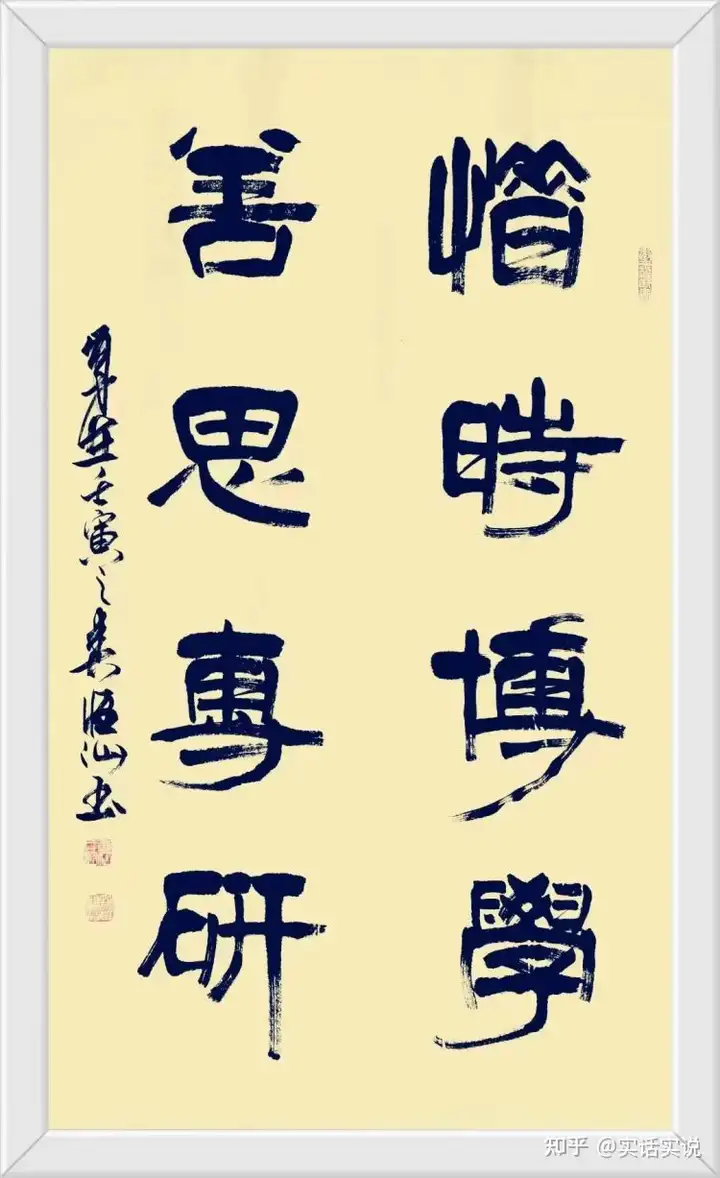 惜時博學
善思專研
壬寅之
书
知乎 @实话实说